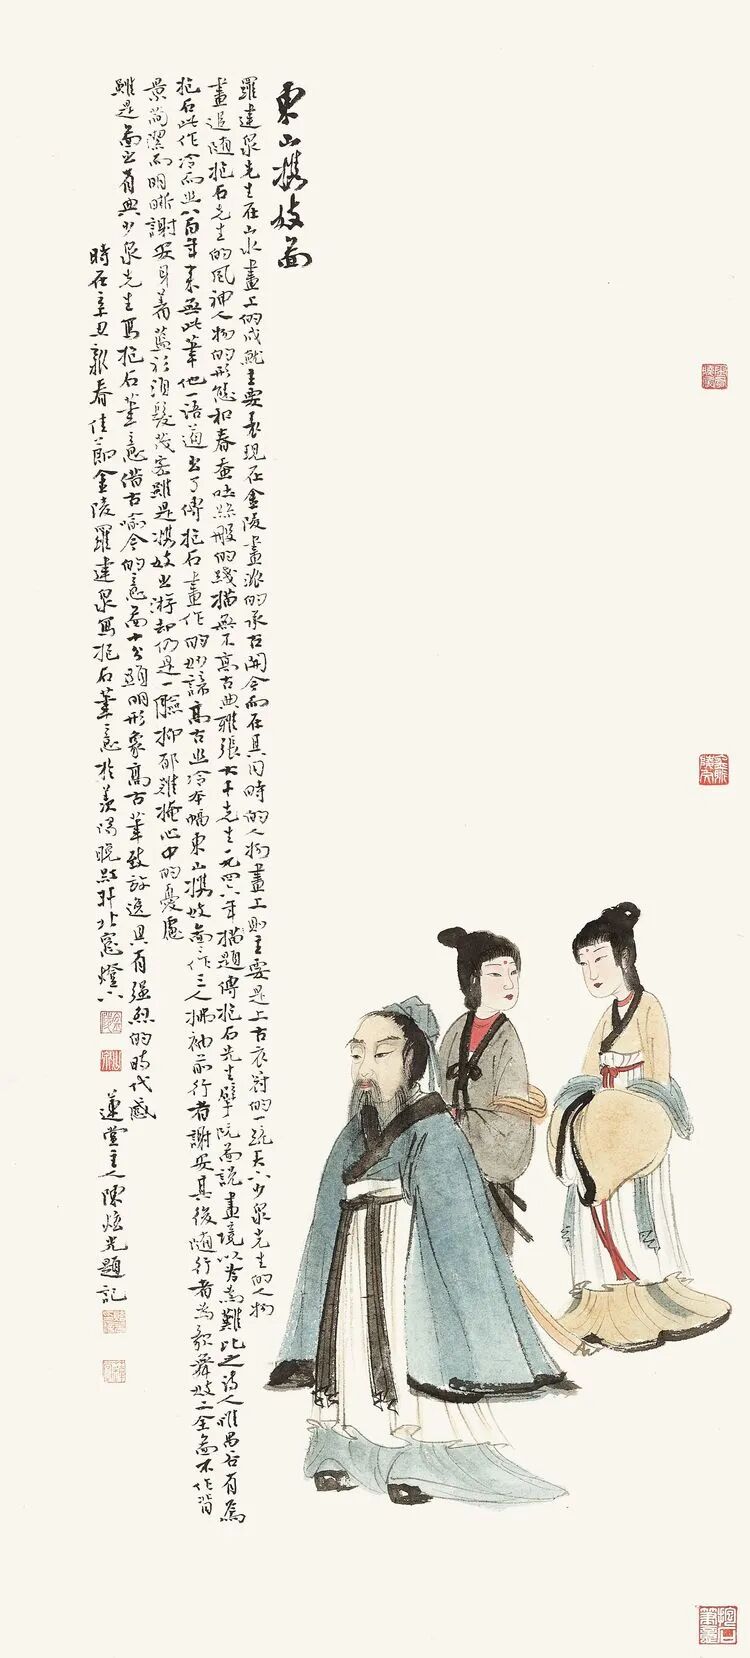 東山攜妓圖
羅建泉先生在山水畫上的成就主要表現在金陵畫派的承古開今而在其同時的人物畫上則主要是上古衣冠的一統天下少泉先生的人物
畫追隨抱石先生的風神人物的形態和春蚕吐絲般的綫描無不高古典雅張大千先生一九四八年描題傅抱石先生擘阮圖說畫境以為尚難比之詩人唯昌谷有焉
抱石此作冷而幽八百年來無此筆他一語道出了傅抱石畫作的妙諦高古幽冷本幅東山攜妓圖作三人拂袖前行者謝安其後隨行者為歌舞妓二全圖不作背
景簡潔而明晰謝安身著藍衫須髮茂密雖是攜妓出游却仍是一臉抑郁難掩心中的憂慮
雖是圖出有典少泉先生寫抱石筆意借古喻今的意圖十分顯明形象高古筆致放逸具有強烈的時代感
時在辛丑新春佳節金陵羅建泉寫抱石筆意於羨陽晚紅軒北窓燈下
蓮堂主人陳炫光題記